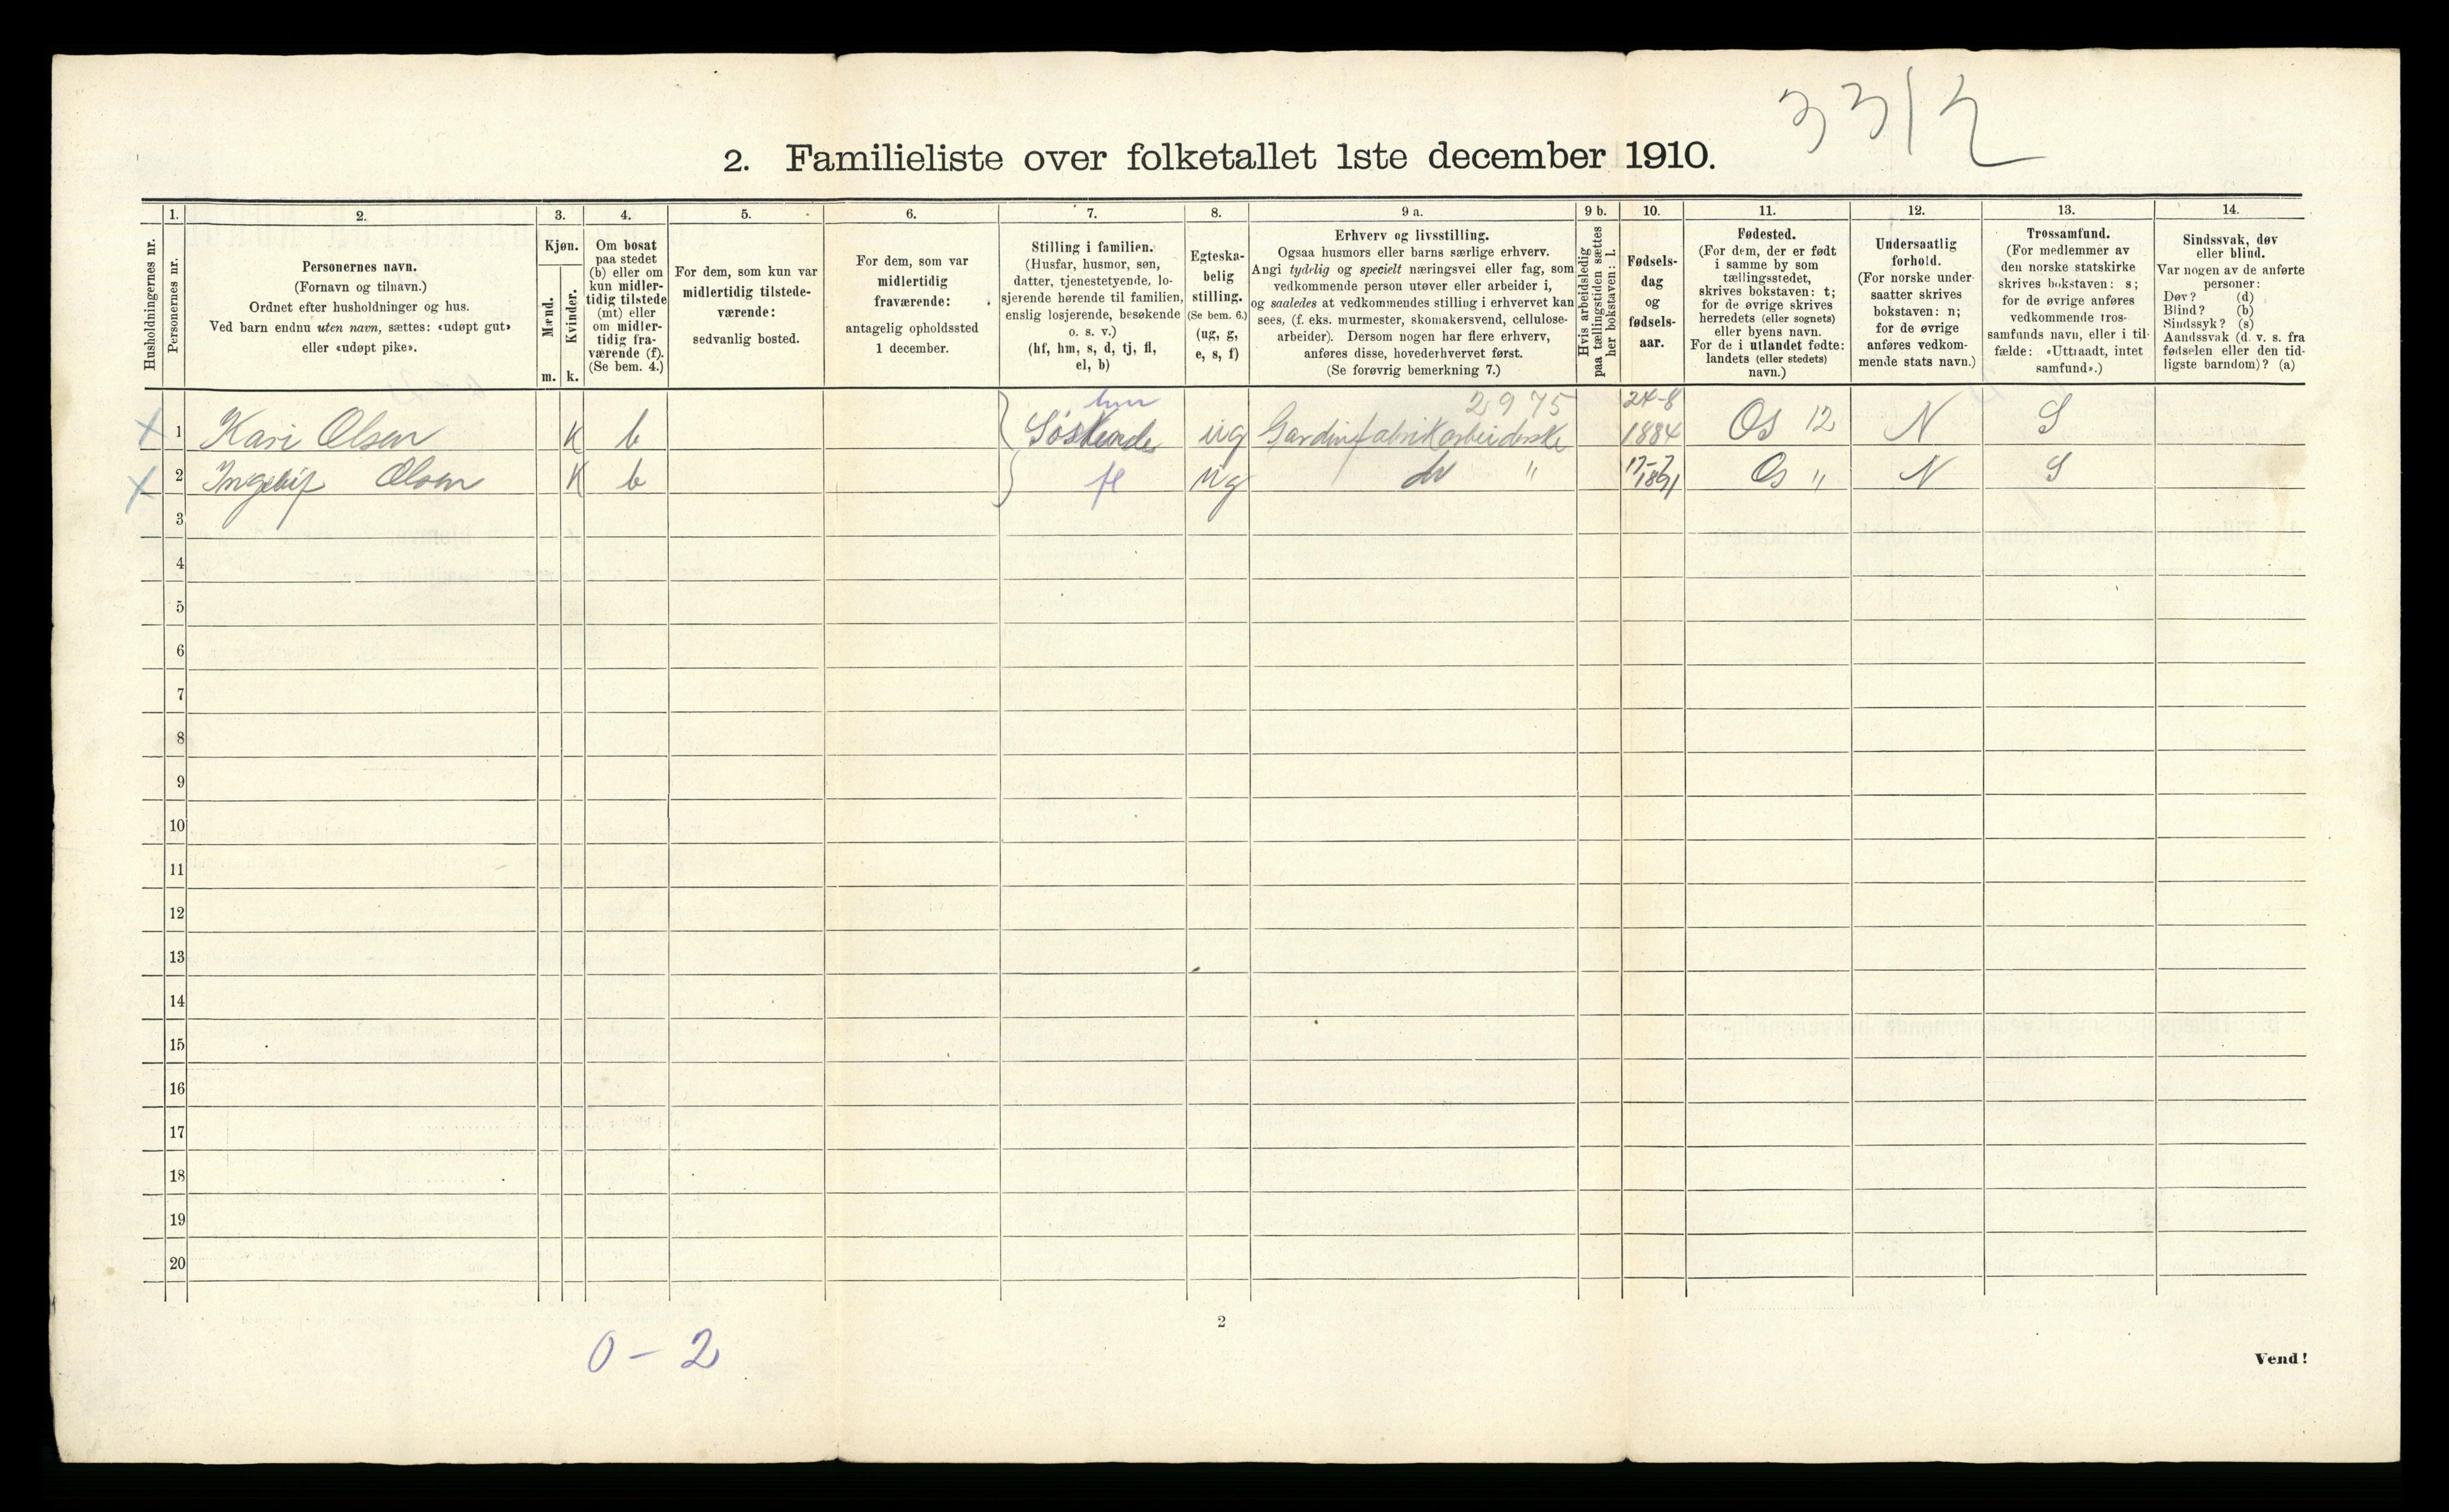 33/2
2. Familieliste over folketallet 1ste december 1910.
1. 2. 3. 4. 5. 6. 7. 8. 9 a. 9 b. 10. 11. 12. 13. 14.
Husholdningernes nr.
Personernes nr.
Personernes navn.
(Fornavn og tilnavn.)
Ordnet efter husholdninger og hus.
Ved barn endnu uten navn, sættes: «udøpt gut»
eller «udøpt pike».
Kjøn.
Mænd.
Kvinder.
m. k.
Om bosat
paa stedet
(b) eller om
kun midler-
tidig tilstede
(mt) eller
om midler-
tidig fra-
værende (f).
(Se bem. 4.)
For dem, som kun var
midlertidig tilstede-
værende:
sedvanlig bosted.
For dem, som var
midlertidig
fraværende:
antagelig opholdssted
1 december.
Stilling i familien.
(Husfar, husmor, søn,
datter, tjenestetyende, lo-
sjerende hørende til familien,
enslig losjerende, besøkende
o. s. v.)
(hf, hm, s, d, tj, fl,
el, b)
Egteska-
belig
stilling.
(Se bem. 6.)
(ug, g,
e, s, f)
Erhverv og livsstilling.
Ogsaa husmors eller barns særlige erhverv.
Angi tydelig og specielt næringsvei eller fag, som
vedkommende person utøver eller arbeider i,
og saaledes at vedkommendes stilling i erhvervet kan
sees, (f. eks. murmester, skomakersvend, cellulose-
arbeider). Dersom nogen har flere erhverv,
anføres disse, hovederhvervet først.
(Se forøvrig bemerkning 7.)
Hvis arbeidsledig
paa tællingstiden sættes
her bokstaven: l.
Fødsels-
dag
og
fødsels-
aar.
Fødested.
(For dem, der er født
i samme by som
tællingsstedet,
skrives bokstaven: t;
for de øvrige skrives
herredets (eller sognets)
eller byens navn.
For de i utlandet fødte:
landets (eller stedets)
navn.)
Undersaatlig
forhold.
(For norske under-
saatter skrives
bokstaven: n;
for de øvrige
anføres vedkom-
mende stats navn.)
Trossamfund.
(For medlemmer av
den norske statskirke
skrives bokstaven: s;
for de øvrige anføres
vedkommende tros-
samfunds navn, eller i til-
fælde: «Uttraadt, intet
samfund».)
Sindssvak, døv
eller blind.
Var nogen av de anførte
personer:
Døv? (d)
Blind? (b)
Sindssyk? (s)
Aandssvak (d. v. s. fra
fødselen eller den tid-
ligste barndom)? (a)
hm 2975 24-8
X 1 Kari Olsen K b Søskende ug Gardinfabrikarbeiderske 1884 Os 12 N S
X 2 Olsen K b fl ug do " 17-7 1891 Os " N S
3
4
5
6
7
8
9
10
11
12
13
14
15
16
17
18
19
20
2
0 - 2
Vend!